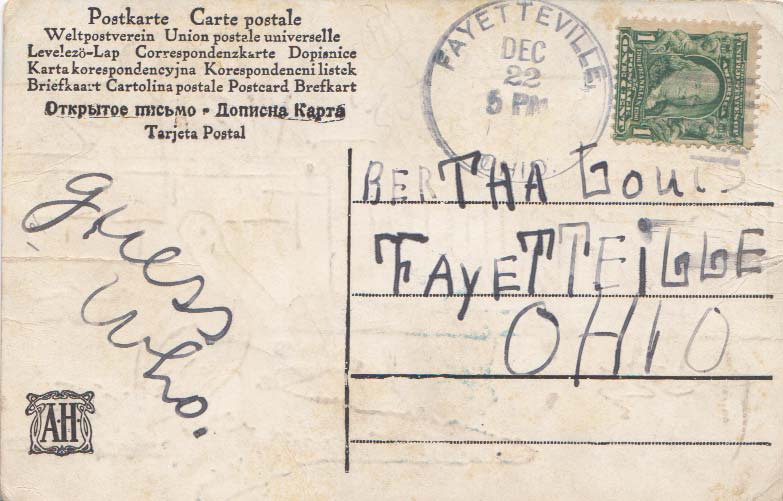 Postkarte Carte postale
Weltpostverein Union postale universelle
Levelezö-Lap Correspondenzkarte Dopisnice
Karta korespondencyjna Korespondencni listek
Briefkaart Cartolina postale Postcard Brefkart
Открытое письмо - Дописна Карта
Tarjeta Postal
FAYETTEVILLE,
DEC
22
5 PM
OHIO.
BERTHA Louis
FAYETTEILLE
OHIO
guess
who.
A.H.